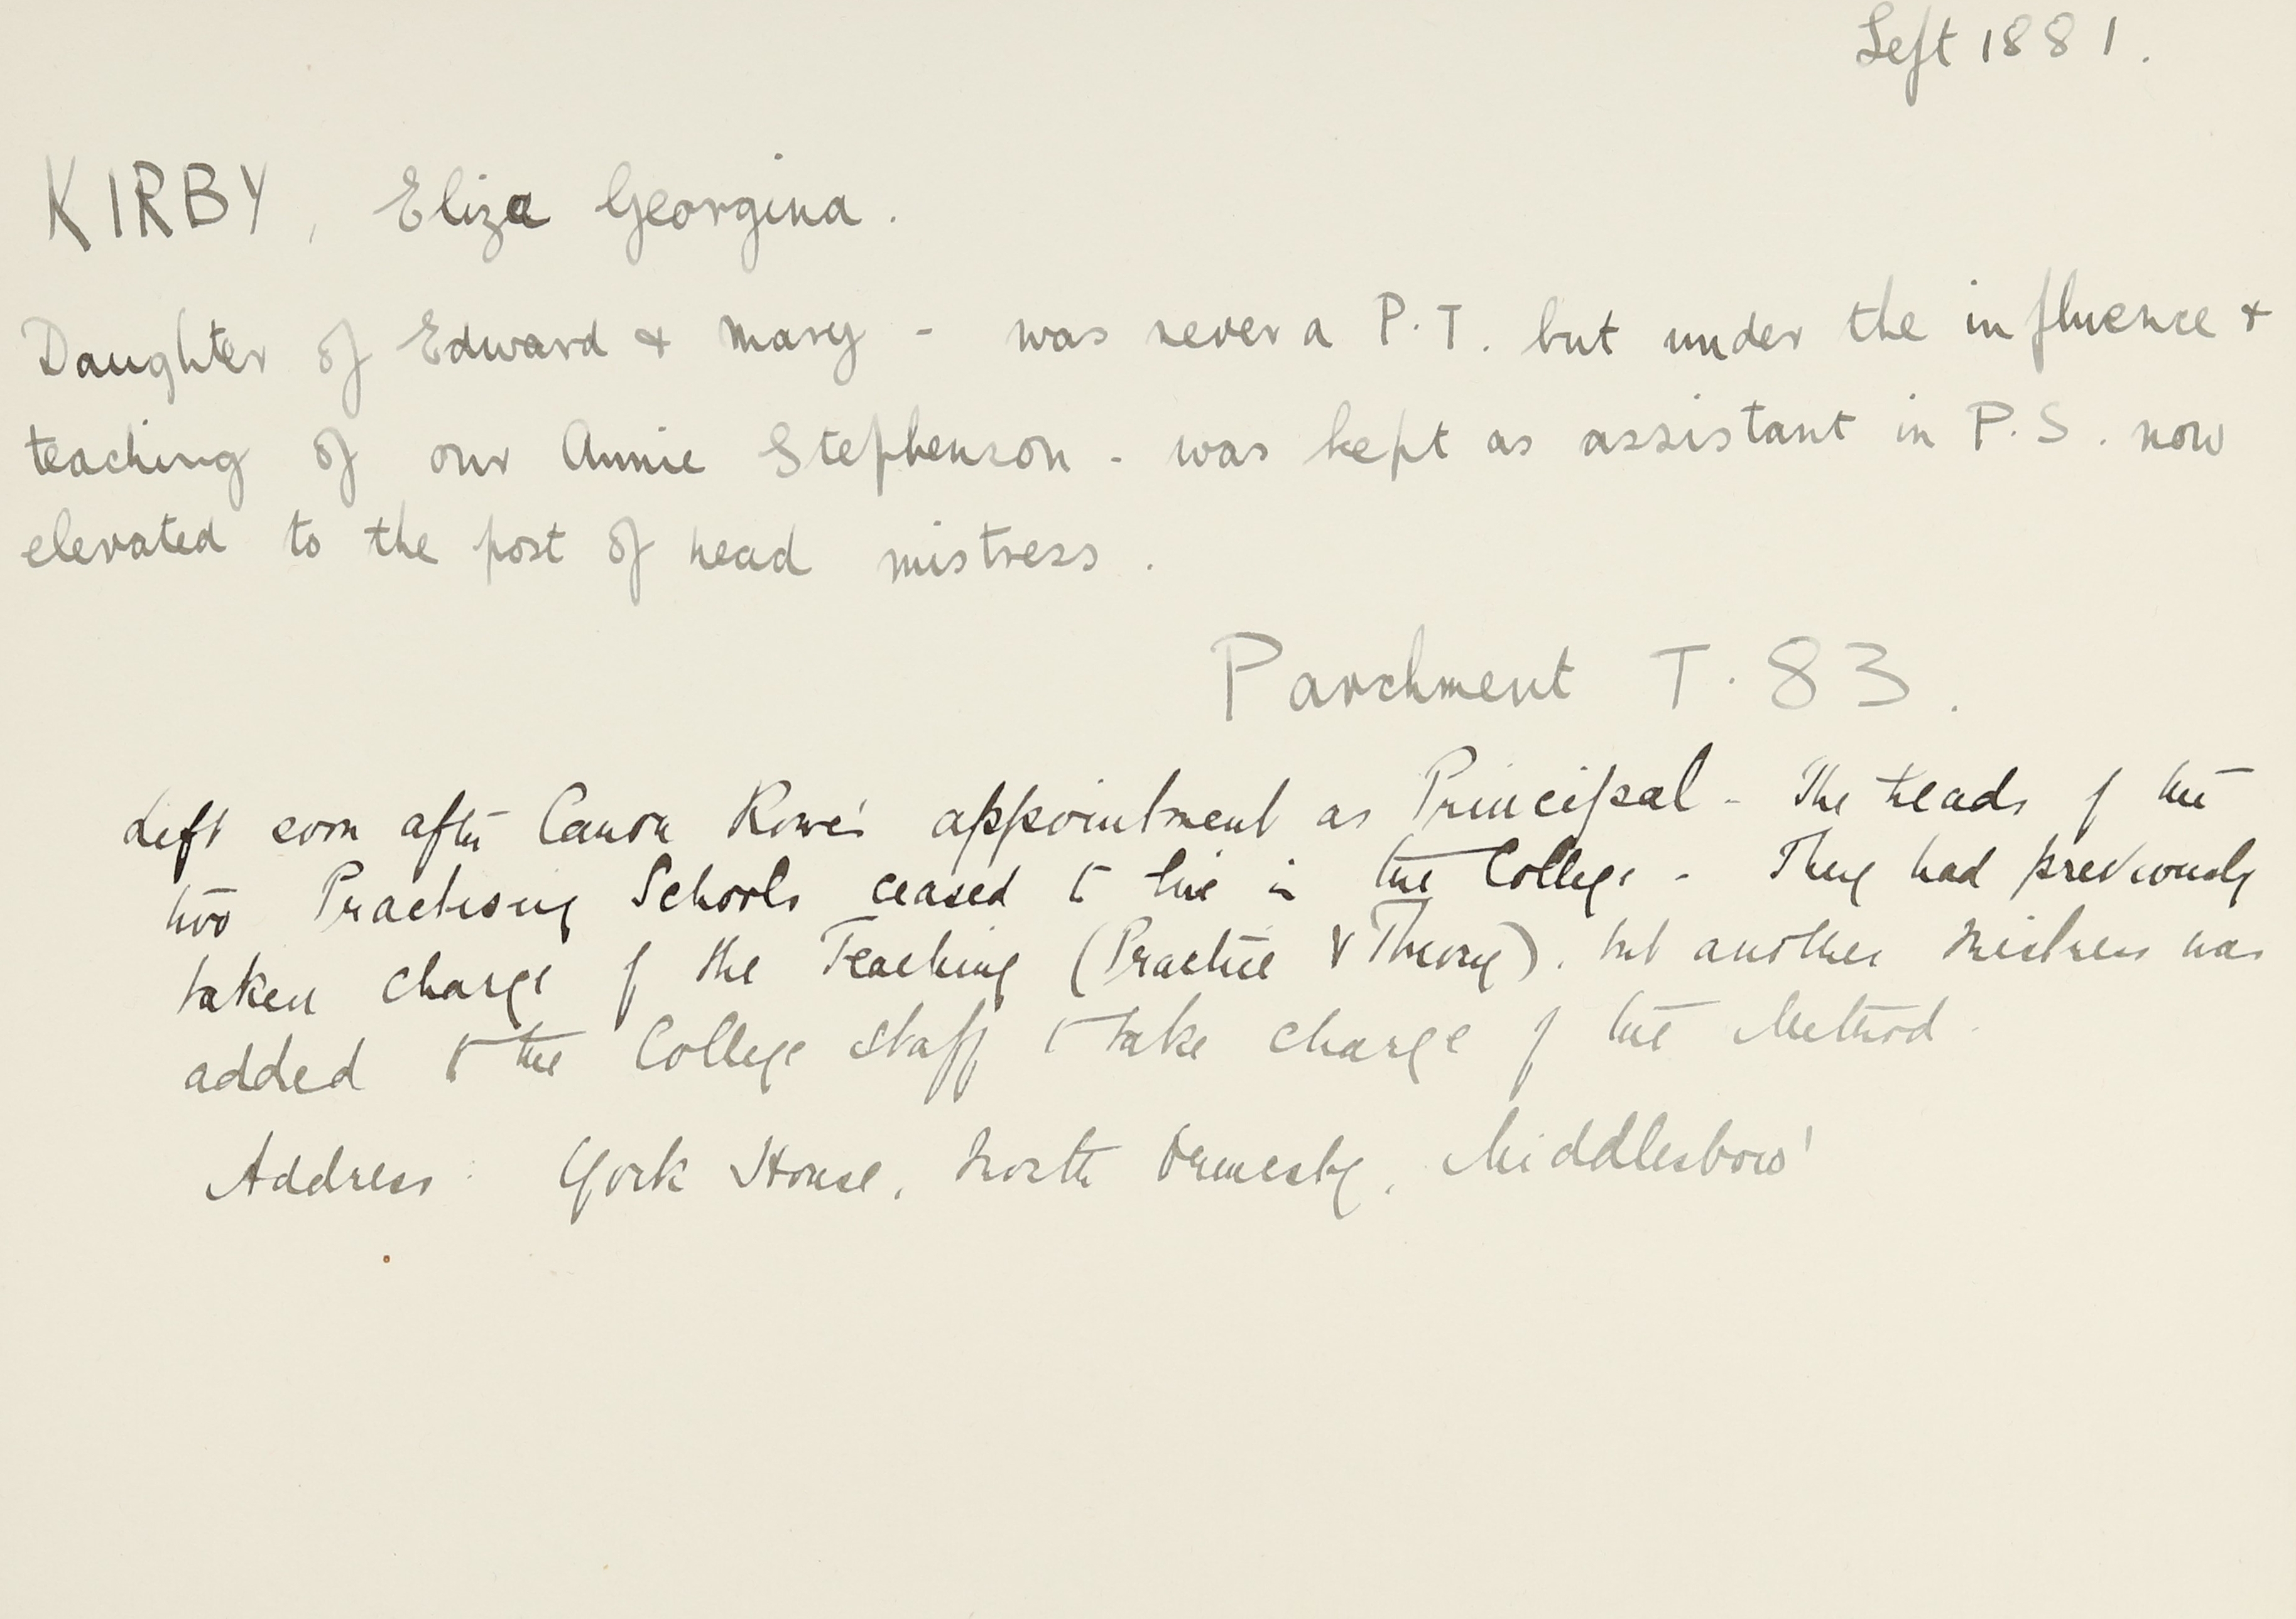 Left 1881.
KIRBY, Eliza Georgina.
Daughter of Edward & Mary - was never a P.T. but under the influence &
teaching of our Annie Stephenson - was kept as assistant in P.S. now
elevated to the post of head mistress.
Parchment T. 83.
Left soon after Canon Rowe's appointment as Principal - The heads of the
two Practising Schools ceased to live in the College - They had previously
taken charge of the Teaching (Practice & Theory), but another Mistress was
added to the College Staff to take charge of the Method.
Address: York House, North Ormesby, Middlesboro'